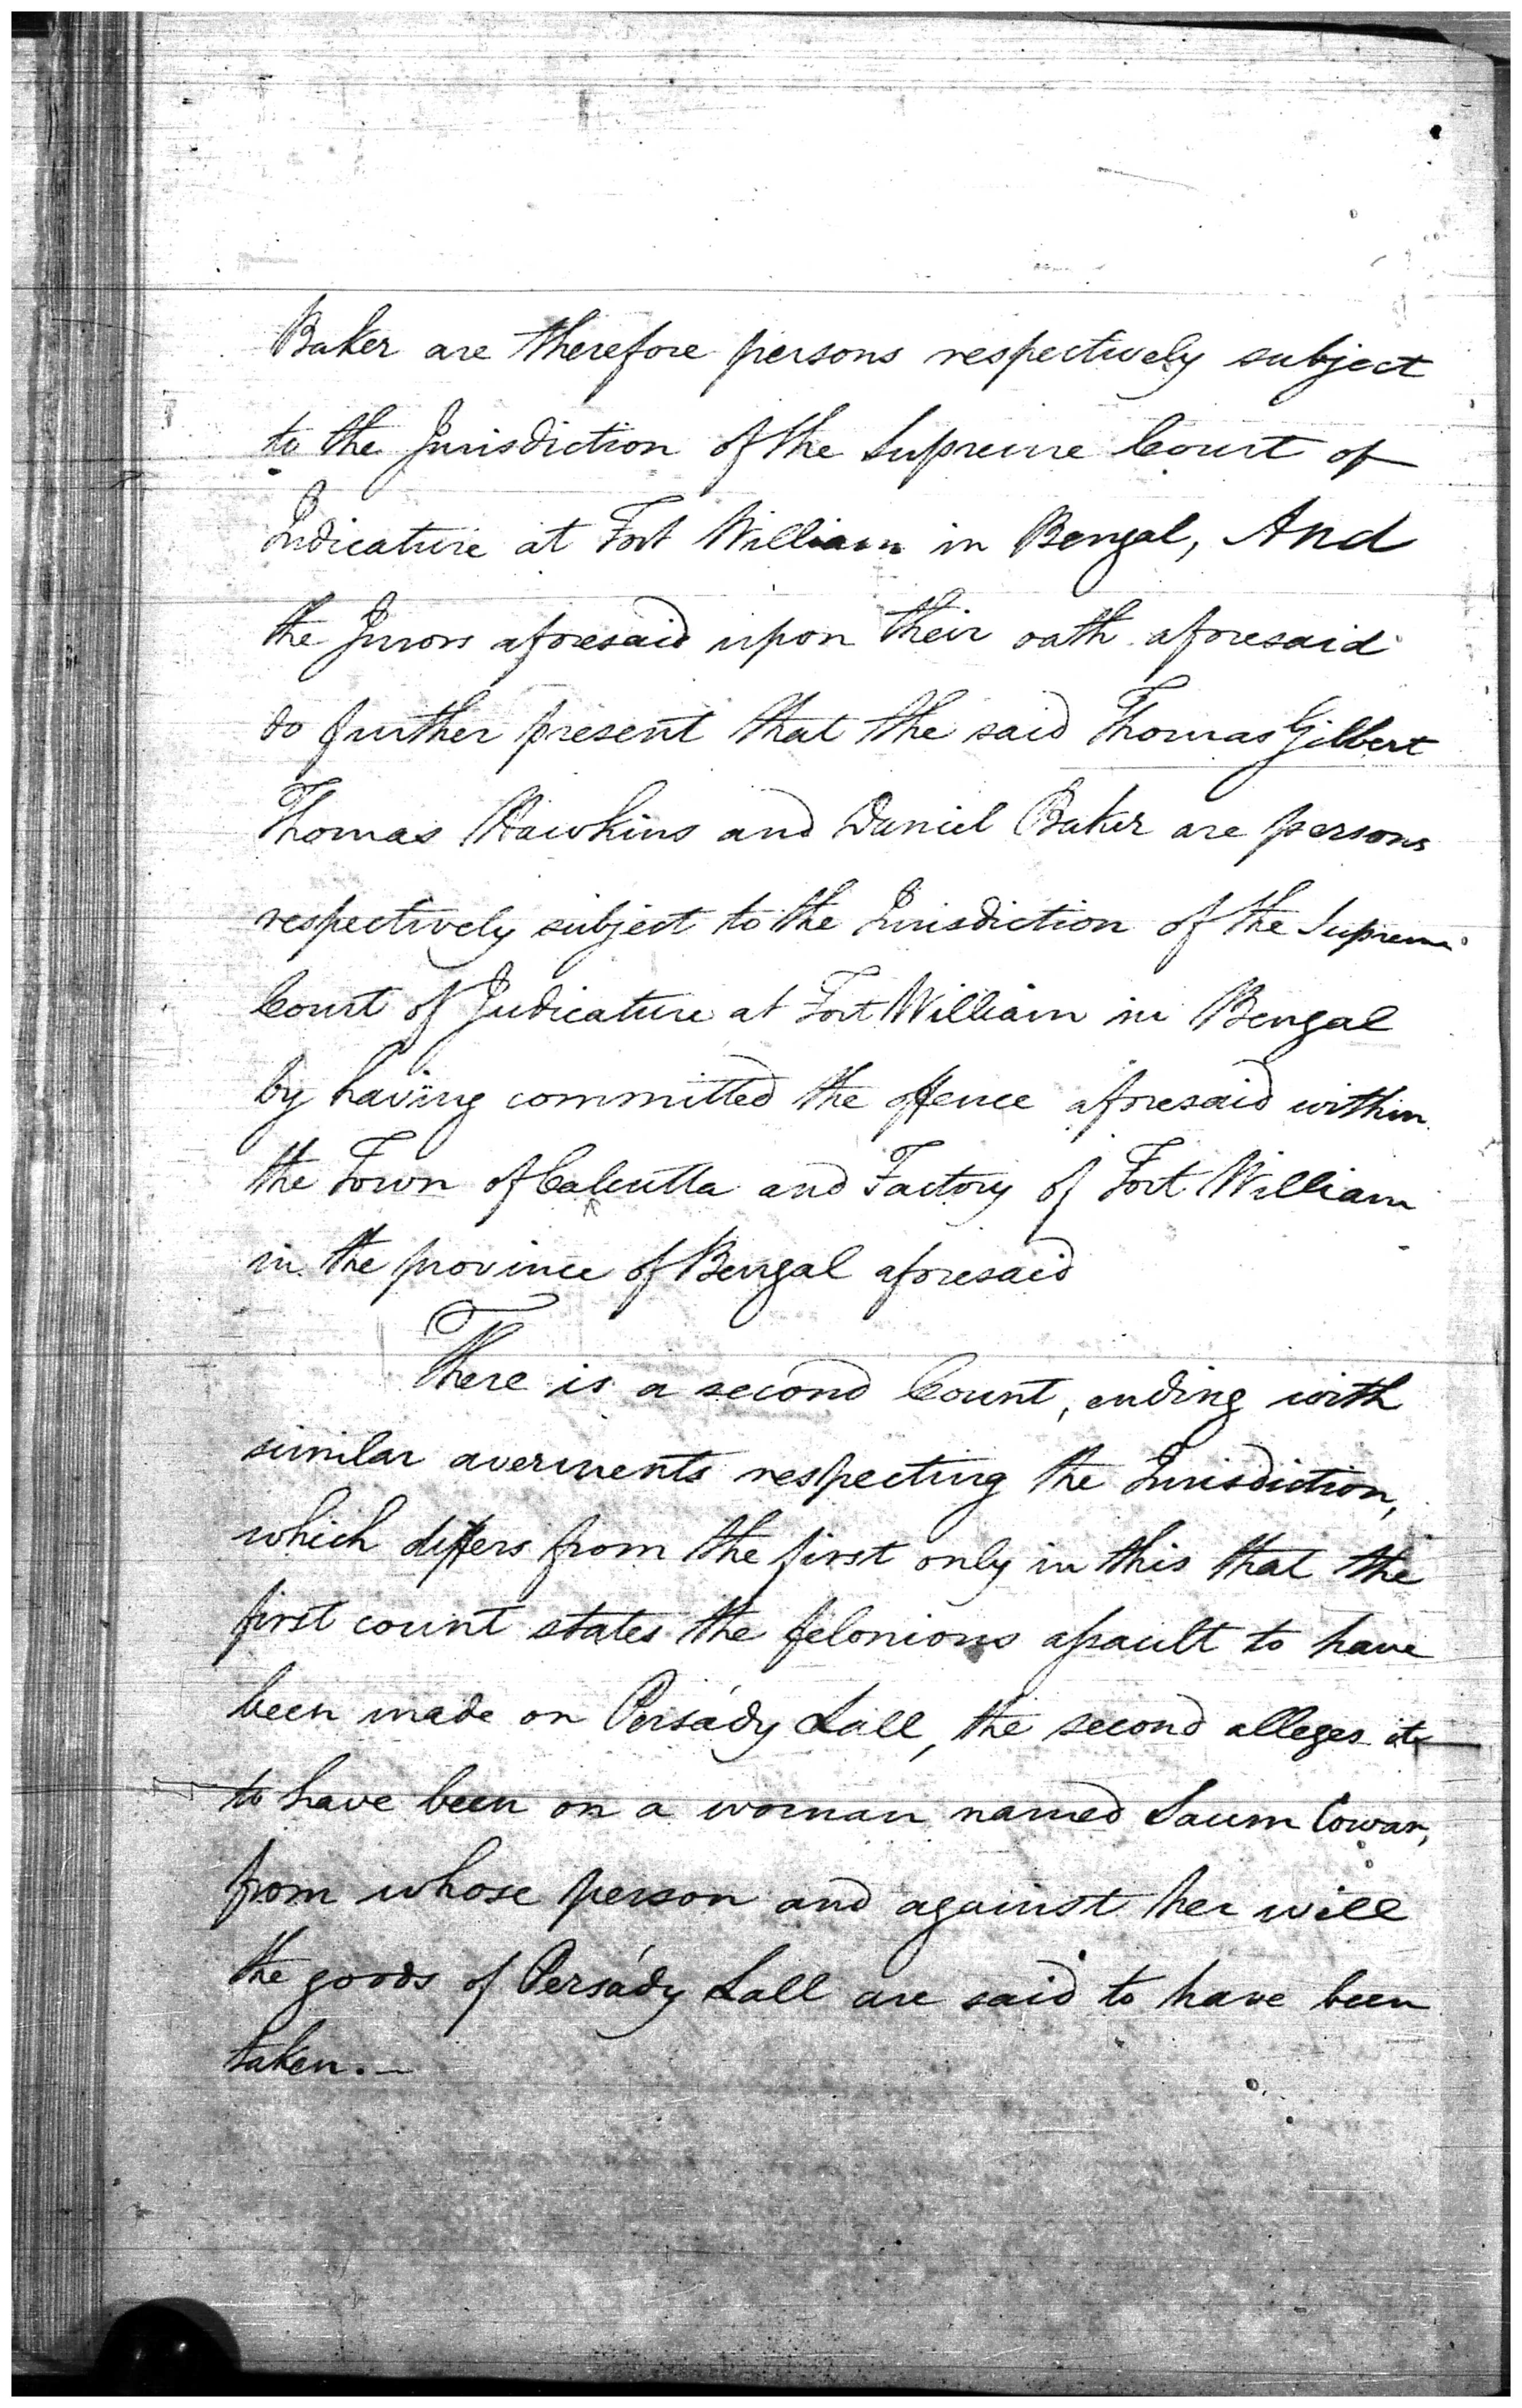 Baker are therefore persons respectively subject
to the Jurisdiction of the Supreme Court of
Judicature at Fort William in Bengal, And
the Jurors aforesaid upon their oath aforesaid
do further present that the said Thomas Gilbert
Thomas Hawkins and Daniel Baker are persons
respectively subject to the Jurisdiction of the Supreme
Court of Judicature at Fort William in Bengal
by having committed the offence aforesaid within
the Town of Calcutta and Factory of Fort William
in the province of Bengal aforesaid
There is a second Count, ending with
similar averments respecting the Jurisdiction,
which differs from the first only in this that the
first count states the felonious assault to have
been made on Persády Lall, the second alleges it
to have been on a woman named Saum Cowar,
from whose person and against her will
the goods of Persády Lall are said to have been
taken.—